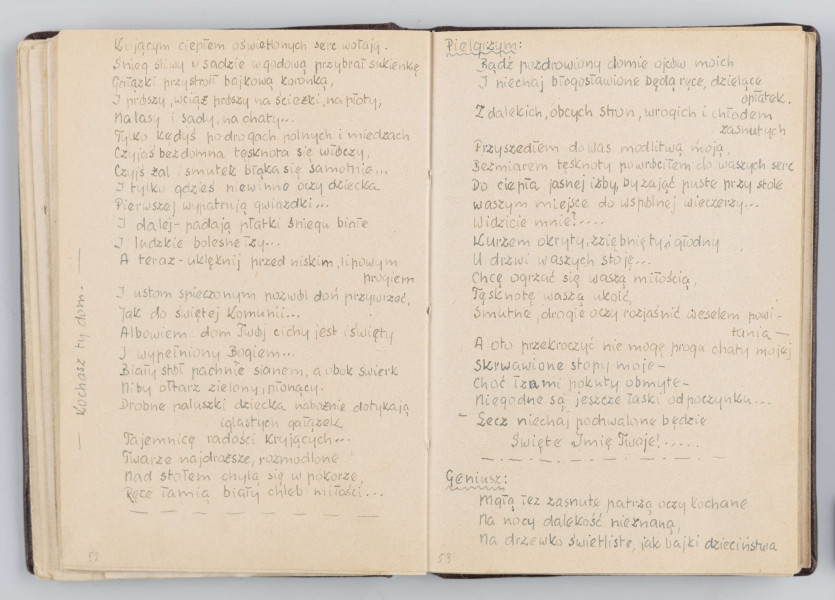 Kającym ciepłem oświetlonych serc wołają.
Śnieg śliwy w sadzie w godową przybrał sukienkę
Gałązki przystroił bajkową koronką,
I prószy, wciąż prószy na ścieżki, na płoty,
Na lasy i sady, na chaty...
Tylko kędyś po drogach polnych i miedzach
Czyjaś bezdomna tęsknota się włóczy,
Czyjś żal i smutek błąka się samotnie...
I tylko gdzieś niewinne oczy dziecka
Pierwszej wypatrują gwiazdki...
I dalej - padają płatki śniegu białe
I ludzkie bolesne łzy...
A teraz - uklęknij przed niskim, lipowym
progiem
I ustom spieczonym pozwól doń przywrzeć,
Jak do świętej Komunii...
Albowiem dom Twój cichy jest i święty
I wypełniony Bogiem...
Biały stół pachnie sianem, a obok świerk
Niby ołtarz zielony, płonący.
Drobne paluszki dziecka nabożnie dotykają
iglastych gałązek
Tajemnicę radości kryjących...
Twarze najdroższe, rozmodlone
Nad stołem chylą się w pokorze,
Ręce łamią biały chleb miłości...
— Kochasz ty dom. —
52
Pielgrzym:
Bądź pozdrowiony domie ojców moich
I niechaj błogosławione będą ręce, dzielące
opłatek.
Z dalekich, obcych stron, wrogich i chłodem
zasnutych
Przyszedłem do was modlitwą moją,
Bezmiarem tęsknoty powróciłem do waszych serc
Do ciepła jasnej izby, by zająć puste przy stole
waszym miejsce do wspólnej wieczerzy...
Widzicie mnie?....
Kurzem okryty, zziębnięty i głodny
U drzwi waszych stoję...
Chcę ogrzać się waszą miłością,
Tęsknotę waszą ukoić,
Smutne, drogie oczy rozjaśnić weselem powi-
tania —
A oto przekroczyć nie mogę progu chaty mojej
Skrwawione stopy moje -
Choć łzami pokuty obmyte -
Niegodne są jeszcze łaski odpoczynku...
- Lecz niechaj pochwalone będzie
Święte Imię Twoje!.....
Geniusz:
Mgłą łez zasnute patrzą oczy kochane
Na nocy dalekość nieznaną,
Na drzewko świetliste, jak bajki dzieciństwa
53